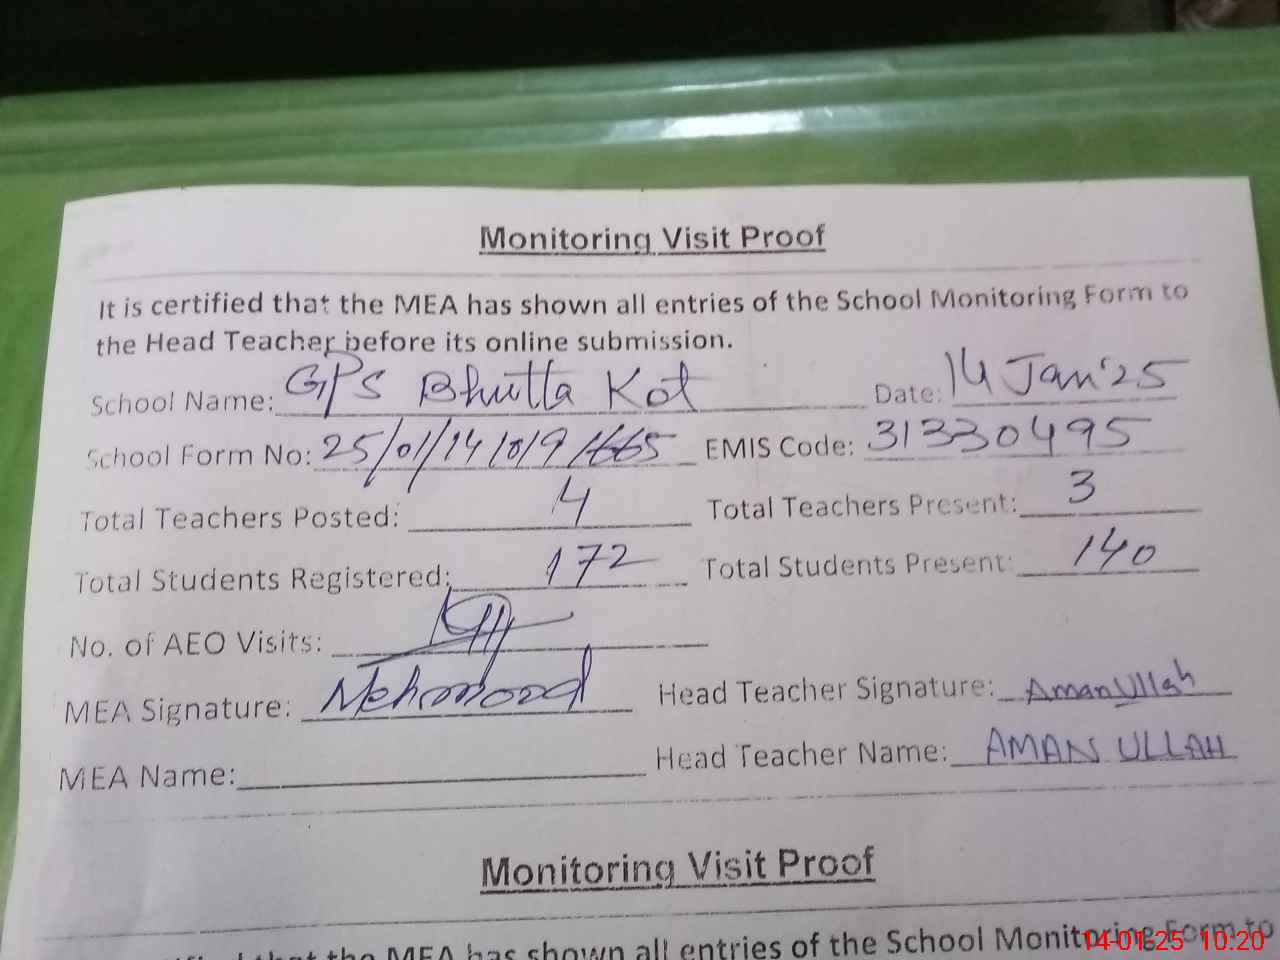 Monitoring Visit Proof
It is certified that the MEA has shown all entries of the School Monitoring Form to
the Head Teacher before its online submission.
School Name: GPS Bhutta Kot Date: 14 Jan'25
School Form No: 25/01/14/0/9/1665 EMIS Code: 31330495
Total Teachers Posted: 4 Total Teachers Present: 3
Total Students Registered: 172 Total Students Present: 140
No. of AEO Visits:
MEA Signature: Mehmood Head Teacher Signature: AmanUllah
MEA Name: Head Teacher Name: AMAN ULLAH
Monitoring Visit Proof
that the MEA has shown all entries of the School Monitoring Form to
14-01-25 10:20